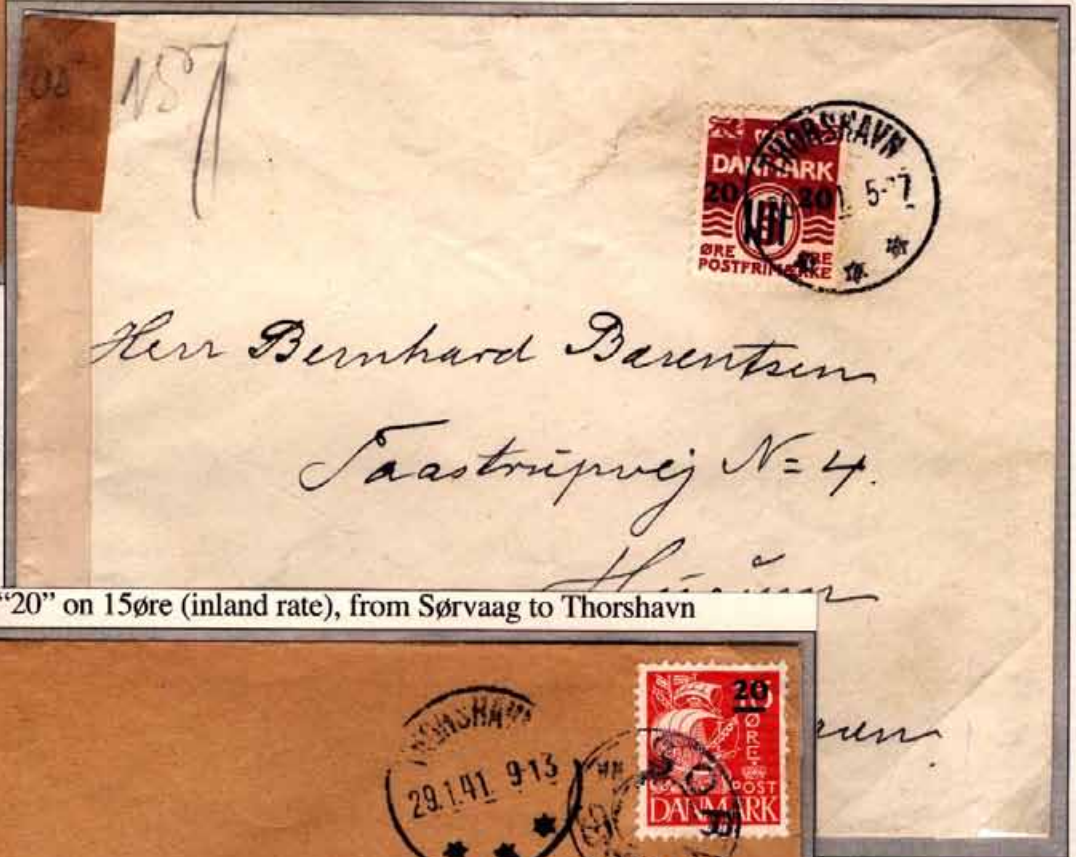 THORSHAVN
5-7
DANMARK
20 20
ØRE ØRE
POSTFRIMÆRKE
Herr Bernhard Bærentsen
Taastrupvej N= 4.
"20" on 15øre (inland rate), from Sørvaag to Thorshavn
THORSHAVN
29.1.41 9-13
20
ØRE
POST
DANMARK